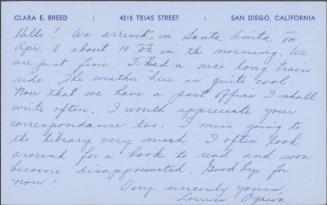 CLARA E. BREED : 4215 TRIAS STREET : SAN DIEGO, CALIFORNIA
Hello! We arrived in Santa Anita on
Apr. 8 about 10:00 in the morning. We
are just fine. I had a nice long train
ride. The weather here is quite cool.
Now that we have a post office I shall
write often. I would appreciate your
correspondance too. I miss going to
the library very much. I often look
around for a book to read and soon
become disappointed. Good bye for
now!
Very sincerely yours,
Louise Ogawa